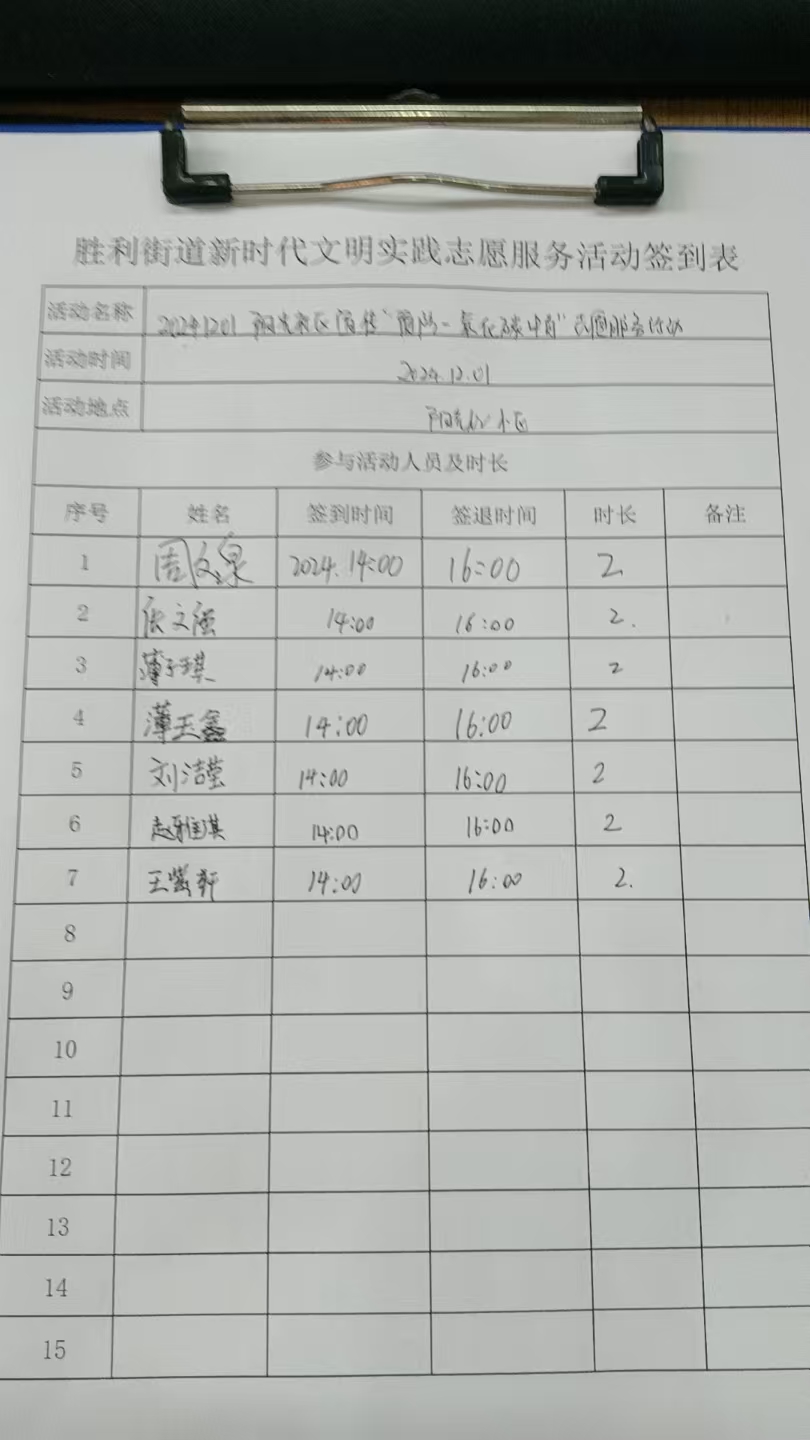 胜利街道新时代文明实践志愿服务活动签到表
活动名称 20241201 阳光社区宣传“预防一氧化碳中毒”志愿服务活动
活动时间 2024.12.01
活动地点 阳光 小区
参与活动人员及时长
序号 姓名 签到时间 签退时间 时长 备注
1 周文泉 2024.14:00 16:00 2
2 张文强 14:00 16:00 2.
3 薄子琪 14:00 16:00 2
4 薄玉鑫 14:00 16:00 2
5 刘洁莹 14:00 16:00 2
6 赵雅淇 14:00 16:00 2
7 王紫轩 14:00 16:00 2.
8
9
10
11
12
13
14
15